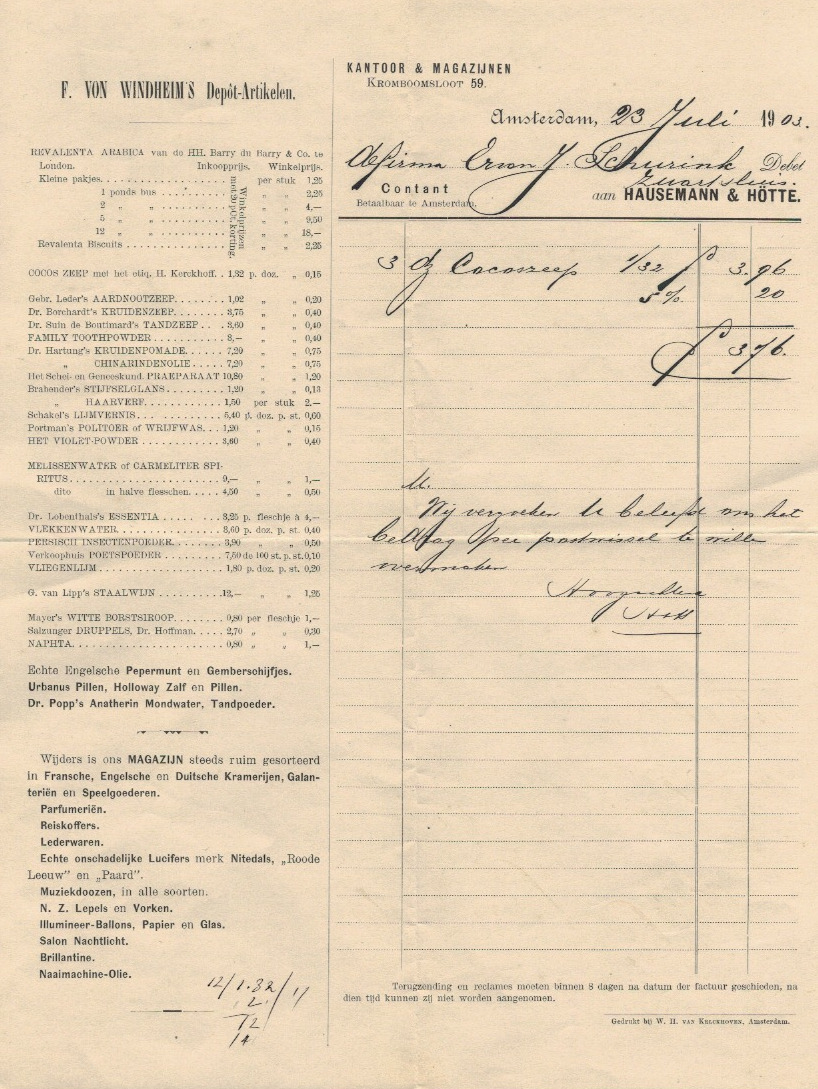 F. VON WINDHEIM'S Depôt-Artikelen.
REVALENTA ARABICA van de HH. Barry du Barry & Co. te
London. Inkoopprijs. Winkelprijs.
Kleine pakjes. per stuk 1,25
1 ponds bus „ „ 2,25
2 „ „ „ „ 4,—
5 „ „ „ „ 9,50
12 „ „ „ „ 18,—
Revalenta Biscuits „ „ 2,25
met 20 pCt. korting.
Winkelprijzen
COCOS ZEEP met het etiq. H. Kerckhoff. . 1,32 p. doz. „ 0,15
Gebr. Leder's AARDNOOTZEEP. 1,02 „ „ 0,20
Dr. Borchardt's KRUIDENZEEP. 3,75 „ „ 0,40
Dr. Suin de Boutimard's TANDZEEP . . 3,60 „ „ 0,40
FAMILY TOOTHPOWDER 3,— „ „ 0,40
Dr. Hartung's KRUIDENPOMADE. 7,20 „ „ 0,75
„ CHINARINDENOLIE 7,20 „ „ 0,75
Het Schei- en Geneeskund. PRAEPARAAT 10,80 „ „ 1,20
Brabender's STIJFSELGLANS 1,20 „ „ 0,13
„ HAARVERF. 1,50 per stuk 2.—
Schakel's LIJMVERNIS. 5,40 p. doz. p. st. 0,60
Portman's POLITOER of WRIJFWAS. 1,20 „ „ 0,15
HET VIOLET-POWDER 3,60 „ „ 0,40
MELISSENWATER of CARMELITER SPI-
RITUS 9,— „ „ 1,—
dito in halve flesschen. 4,50 „ „ 0,50
Dr. Lobenthals's ESSENTIA 3,25 p. fleschje à 4,—
VLEKKENWATER. 3,60 p. doz. p. st. 0,40
PERSISCH INSECTENPOEDER. 3,90 „ „ 0,50
Verkoophuis POETSPOEDER 7,50 de 100 st. p. st. 0,10
VLIEGENLIJM 1,80 p. doz. p. st. 0,20
G. van Lipp's STAALWIJN 12,— „ „ 1,25
Mayer's WITTE BORSTSIROOP. 0,80 per fleschje 1,—
Salzunger DRUPPELS, Dr. Hoffman. 2,70 „ „ 0,30
NAPHTA. 0,80 „ „ 1,—
Echte Engelsche Pepermunt en Gemberschijfjes.
Urbanus Pillen, Holloway Zalf en Pillen.
Dr. Popp's Anatherin Mondwater, Tandpoeder.
Wijders is ons MAGAZIJN steeds ruim gesorteerd
in Fransche, Engelsche en Duitsche Kramerijen, Galan-
teriën en Speelgoederen.
Parfumeriën.
Reiskoffers.
Lederwaren.
Echte onschadelijke Lucifers merk Nitedals, „Roode
Leeuw" en „Paard".
Muziekdoozen, in alle soorten.
N. Z. Lepels en Vorken.
Illumineer-Ballons, Papier en Glas.
Salon Nachtlicht.
Brillantine.
Naaimachine-Olie.
12/1.32/11
12
12
KANTOOR & MAGAZIJNEN
KROMBOOMSLOOT 59.
Amsterdam, 23 Juli 1903.
de firma Erven J. Schuurink Debet
Zwartsluis.
Contant aan HAUSEMANN & HÖTTE.
Betaalbaar te Amsterdam.
3 dz Cocoszeep 1/32 f 3.96
5% 20
f 3.76.
M.
Wij verzoeken U beleefd ons het
bedrag per postwissel te willen
overmaken
Hoogachtend
H&H
Terugzending en reclames moeten binnen 8 dagen na datum der factuur geschieden, na
dien tijd kunnen zij niet worden aangenomen.
Gedrukt bij W. H. VAN KELCKHOVEN, Amsterdam.